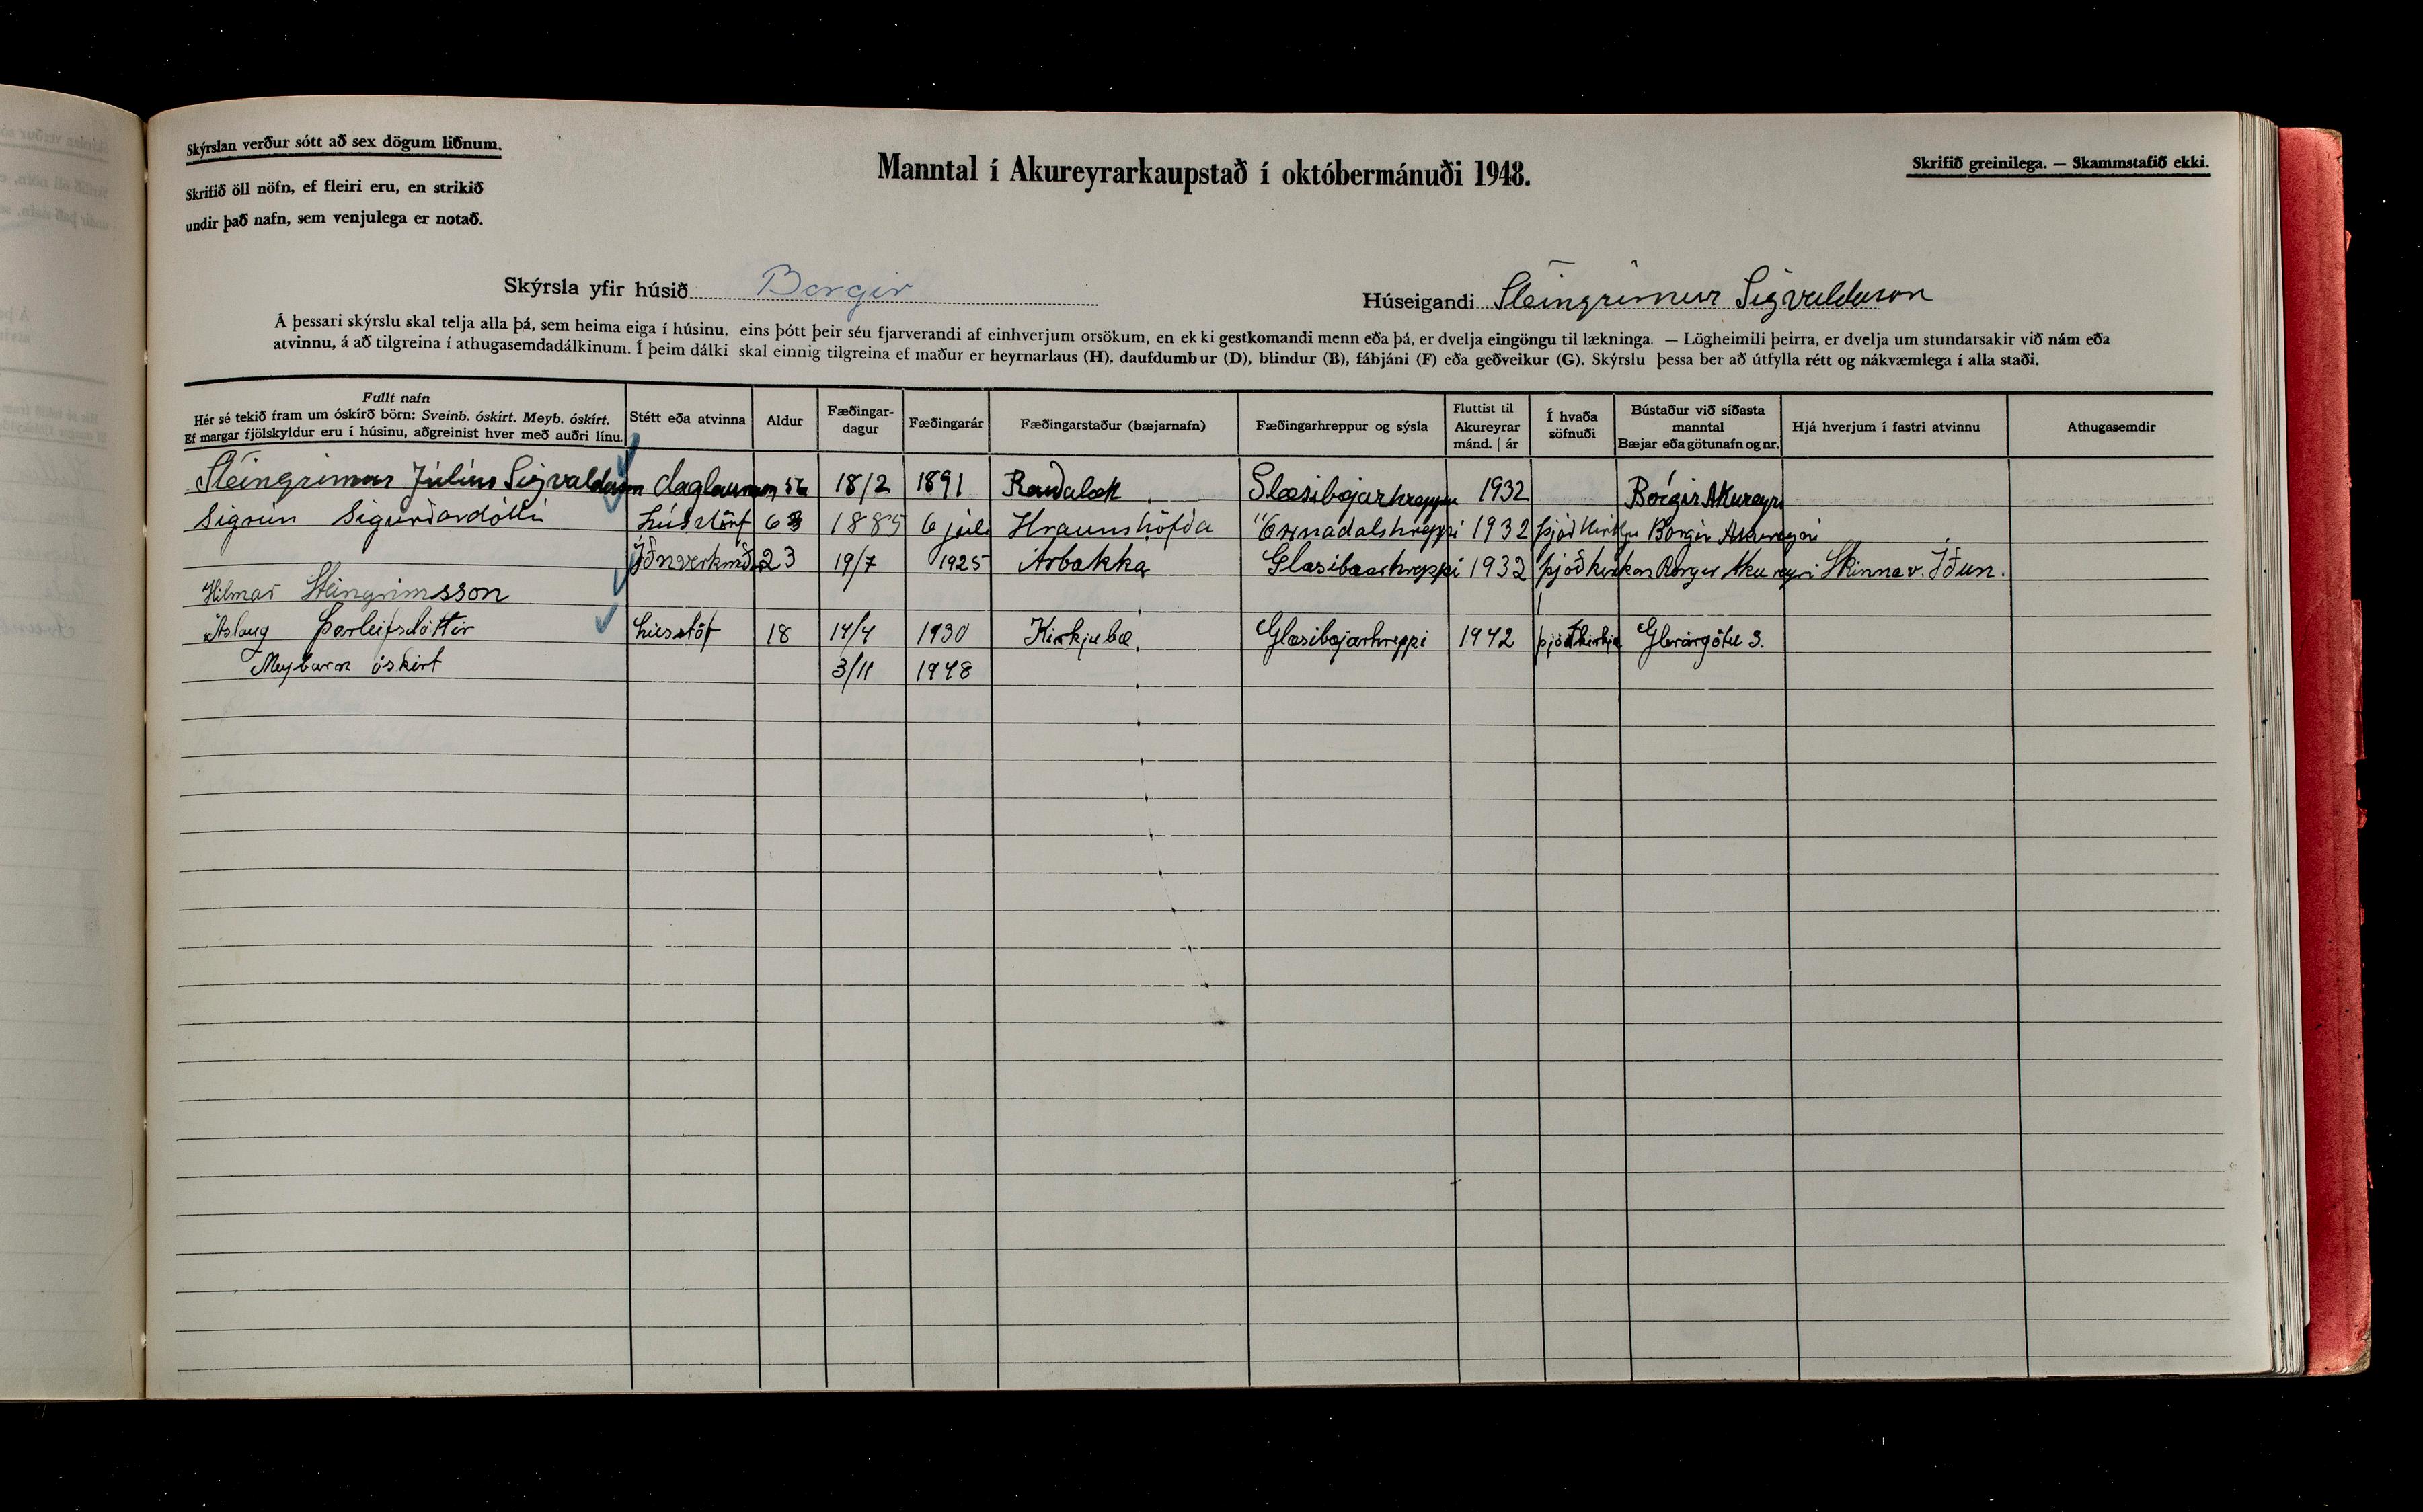 Skýrslan verður sótt að sex dögum liðnum.
Skrifið öll nöfn, ef fleiri eru, en strikið
undir það nafn, sem venjulega er notað.
Manntal í Akureyrarkaupstað í októbermánuði 1948.
Skrifið greinilega. — Skammstafið ekki.
Skýrsla yfir húsið Borgir
Húseigandi Steingrímur Sigvaldason
Á þessari skýrslu skal telja alla þá, sem heima eiga í húsinu, eins þótt þeir séu fjarverandi af einhverjum orsökum, en ekki gestkomandi menn eða þá, er dvelja eingöngu til lækninga. — Lögheimili þeirra, er dvelja um stundarsakir við nám eða
atvinnu, á að tilgreina í athugasemdadálkinum. Í þeim dálki skal einnig tilgreina ef maður er heyrnarlaus (H), daufdumbur (D), blindur (B), fábjáni (F) eða geðveikur (G). Skýrslu þessa ber að útfylla rétt og nákvæmlega í alla staði.
Fullt nafn
Hér sé tekið fram um óskírð börn: Sveinb. óskírt. Meyb. óskírt.
Ef margar fjölskyldur eru í húsinu, aðgreinist hver með auðri línu.
Stétt eða atvinna
Aldur
Fæðingar-
dagur
Fæðingarár
Fæðingarstaður (bæjarnafn)
Fæðingarhreppur og sýsla
Fluttist til
Akureyrar
mánd. | ár
Í hvaða
söfnuði
Bústaður við síðasta
manntal
Bæjar eða götunafn og nr.
Hjá hverjum í fastri atvinnu
Athugasemdir
Steingrímur Júlíus Sigvaldason daglaunam 18/2 1891 Rauðalæk Glæsibæjarhreppi 1932 Borgir Akureyri
Sigrún Sigurðardóttir hússtörf 63 1885 6 júlí Hraunshöfða Öxnadalshreppi 1932 þjóðkirkju Borgir Akureyri
Iðnverkmað 23 19/7 1925 Árbakka Glæsibæarhreppi 1932 þjóðkirkjan Borgir Akureyri Skinnav. Iðun.
Hilmar Steingrímsson
Áslaug Þorleifsdóttir hússtöf 18 14/4 1930 Kirkjubæ. Glæsibæjarhreppi 1942 þjóðkirkja Glerárgötu 3.
Meybarn óskírt 3/11 1948